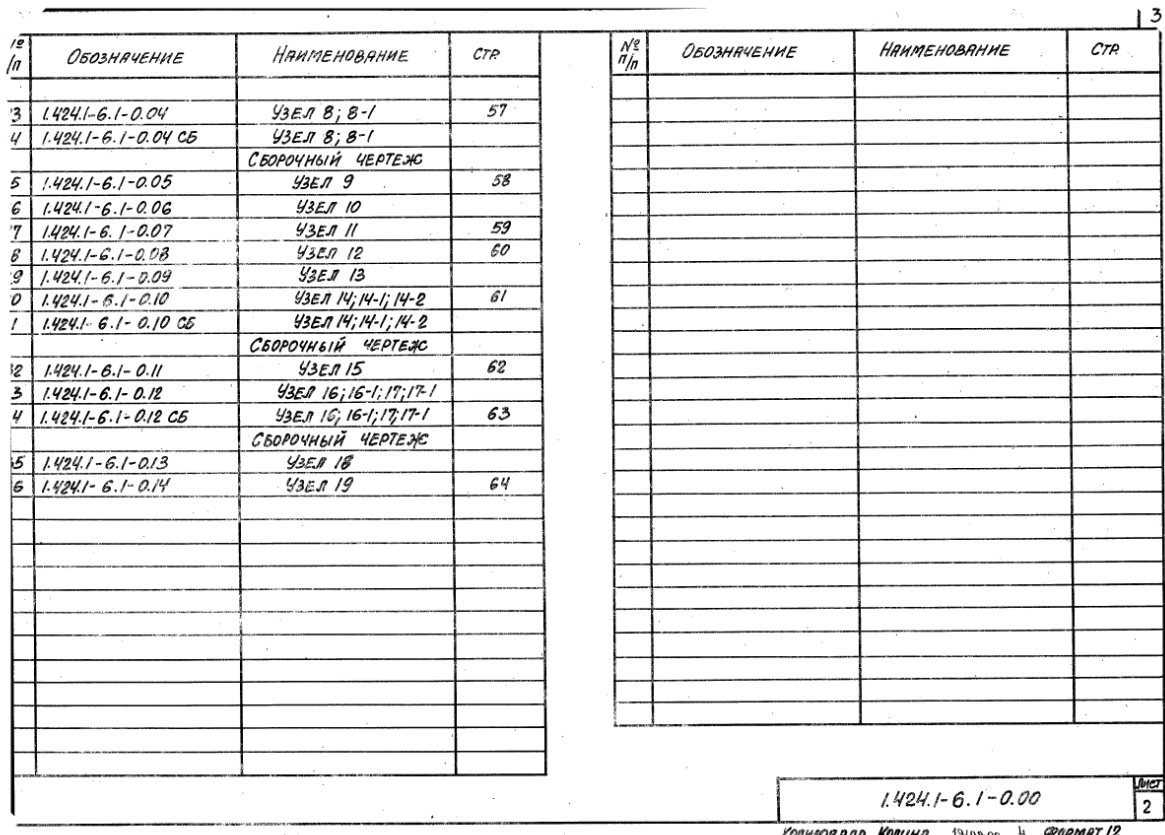 3
№ п/п ОБОЗНАЧЕНИЕ НАИМЕНОВАНИЕ СТР.
3 1.424.1-6.1-0.04 УЗЕЛ 8; 8-1 57
4 1.424.1-6.1-0.04 СБ УЗЕЛ 8; 8-1
СБОРОЧНЫЙ ЧЕРТЕЖ
5 1.424.1-6.1-0.05 УЗЕЛ 9 58
6 1.424.1-6.1-0.06 УЗЕЛ 10
7 1.424.1-6.1-0.07 УЗЕЛ 11 59
8 1.424.1-6.1-0.08 УЗЕЛ 12 60
9 1.424.1-6.1-0.09 УЗЕЛ 13
0 1.424.1-6.1-0.10 УЗЕЛ 14; 14-1; 14-2 61
1 1.424.1-6.1-0.10 СБ УЗЕЛ 14; 14-1; 14-2
СБОРОЧНЫЙ ЧЕРТЕЖ
2 1.424.1-6.1-0.11 УЗЕЛ 15 62
3 1.424.1-6.1-0.12 УЗЕЛ 16; 16-1; 17; 17-1
4 1.424.1-6.1-0.12 СБ УЗЕЛ 16; 16-1; 17; 17-1 63
СБОРОЧНЫЙ ЧЕРТЕЖ
5 1.424.1-6.1-0.13 УЗЕЛ 18
6 1.424.1-6.1-0.14 УЗЕЛ 19 64
№ п/п ОБОЗНАЧЕНИЕ НАИМЕНОВАНИЕ СТР.
1.424.1-6.1-0.00
ЛИСТ
2
КОПИРОВАЛ ФОРМАТ 12